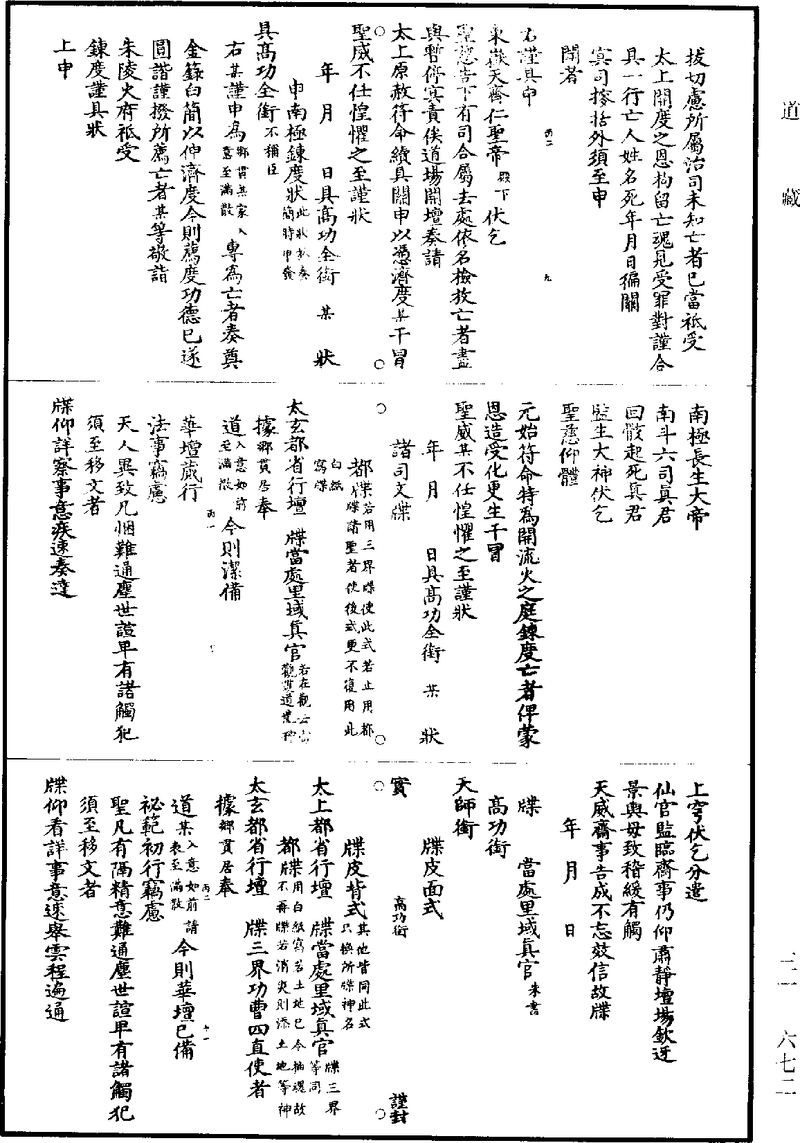 道藏
拔切慮所屬治司未知亡者已當祇受
太上開度之恩拘留亡魂見受罪對謹合
具一行亡人姓名死年月日徧關
冥司撿括外須至申
聞者
右謹具申
東嶽天齊仁聖帝殿下伏乞
聖慈告下有司合屬去處依名檢放亡者盡
與暫停冥責俟道場開壇奏請
太上原赦符命續具關申以憑濟度某干冒
聖威不任惶懼之至謹狀
年 月 日具高功全銜 某 狀
申南極鍊度狀此狀於奏簡時申發
具高功全銜不稱臣
右某謹申為鄉貫某家入意至滿散專為亡者奏奠
金籙白簡以伸濟度今則薦度功德已遂
圓諧謹撥所薦亡者某等敬詣
朱陵火府祇受
鍊度謹具狀
上申
南極長生大帝
南斗六司眞君
回骸起死眞君
監生大神伏乞
聖慈仰體
元始符命特為開流火之庭鍊度亡者俾蒙
恩造受化更生干冒
聖威某不任惶懼之至謹狀
年 月 日具高功全銜 某 狀
諸司文牒
都牒若用三界牒使此式若止用都牒牒諸聖者使後式更不復用此白紙寫牒
太玄都省行壇 牒當處里域眞官
據鄉貫居奉
道入意如前至滿散今則潔備
華壇蕆行
法事竊慮
天人異致凡悃難通塵世諠卑有諸觸犯
須至移文者
牒仰詳察事意疾速奏達
上穹伏乞分遣
仙官監臨齋事仍仰肅靜壇場欽迓
景輿毋致稽緩有觸
天威齋事告成不忘效信故牒
年 月 日
牒 當處里域眞官朱書
高功銜
天師銜
牒皮面式
實 高功銜 謹封
牒皮背式其他皆同此式只換所牒神名
太上都省行壇 牒當處里域眞官牒三界等同
都牒用白紙寫若土地已今抽魂故不再牒若消災則添土地等神
太玄都省行壇 牒三界功曹四直使者
據鄉貫居奉
道某入意如前請表至滿散今則華壇已備
祕範初行竊慮
聖凡有隔精意難通塵世諠卑有諸觸犯
須至移文者
牒仰看詳事意速舉雲程遍通
六七二